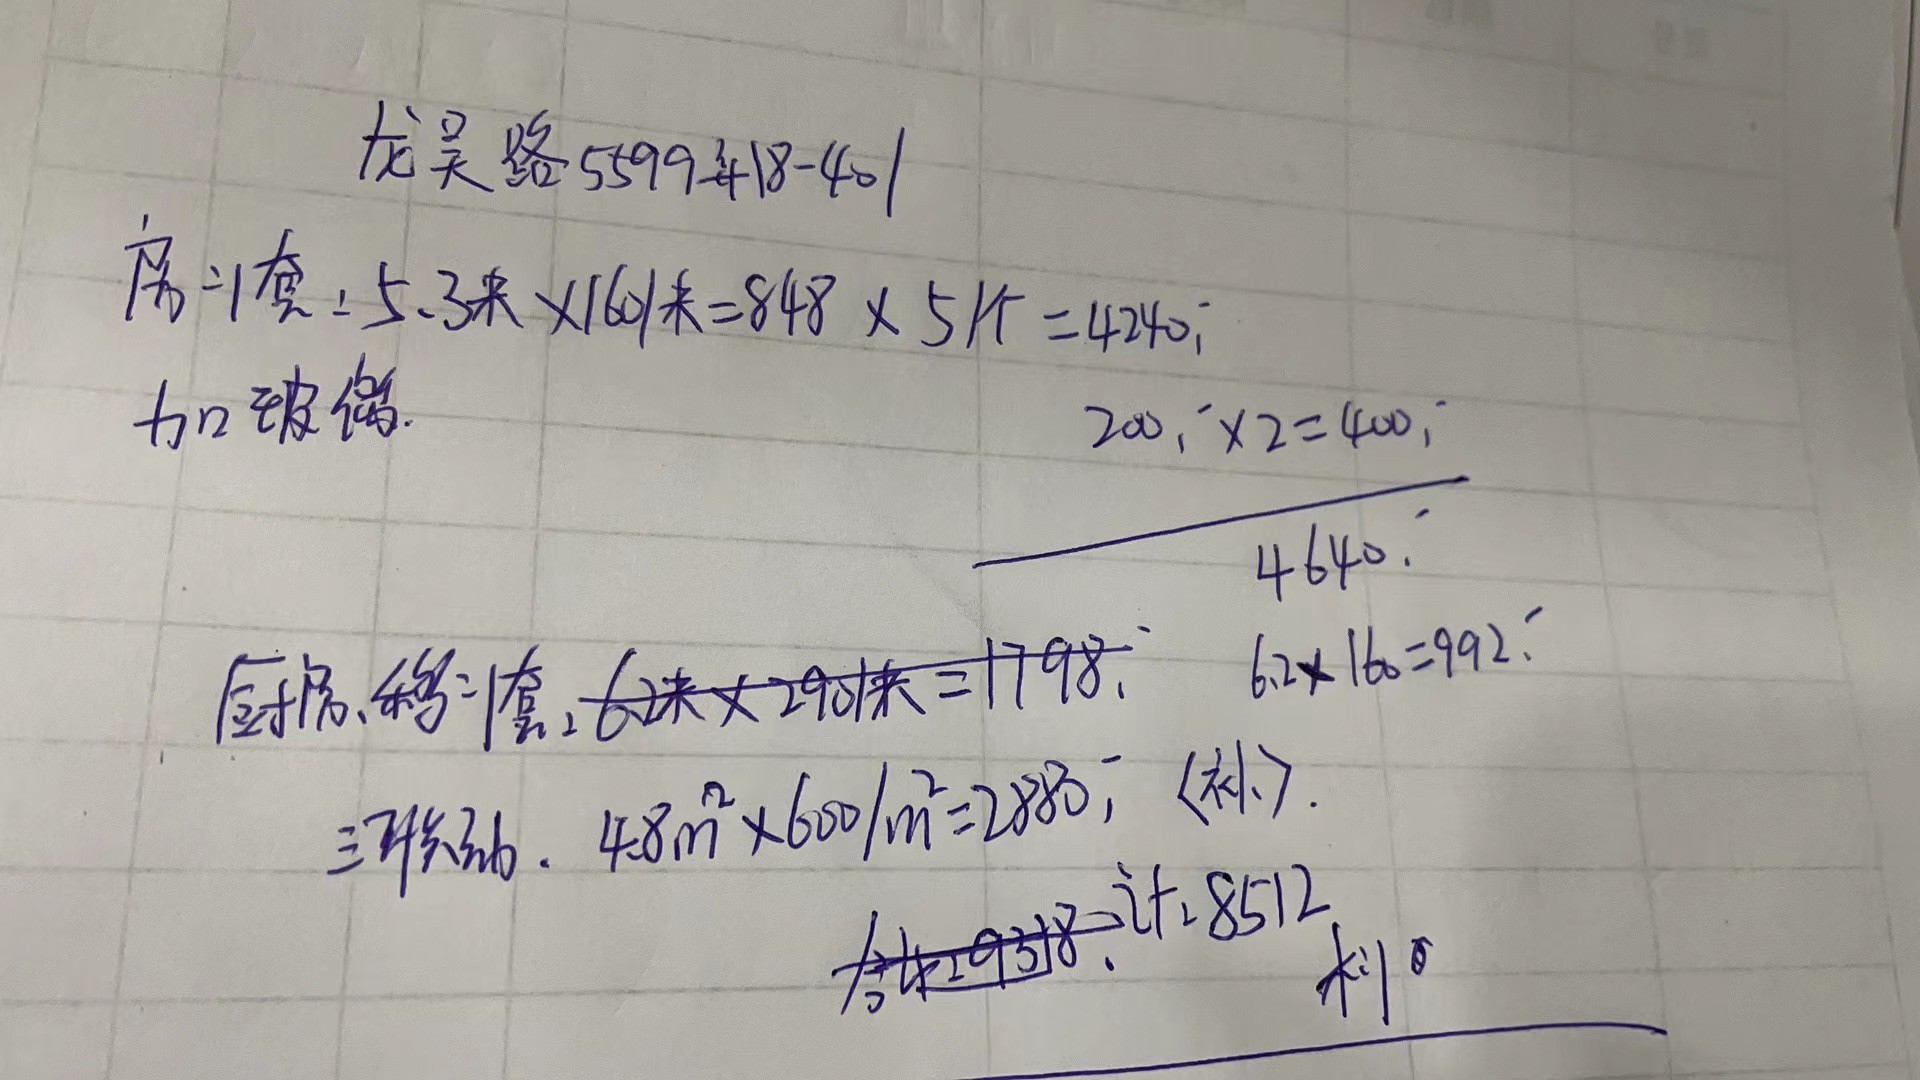 龙吴路5599弄18-401
房门套:5.3米×160/米=848×5个=4240,-
加玻偏. 200,-×2=400,-
4640.-
厨房、移门套:6.2米×290/米=1798,- 6.2×160=992.-
三联动. 4.8m²×600/m²=2880,- <补>.
合计:9318. 计:8512